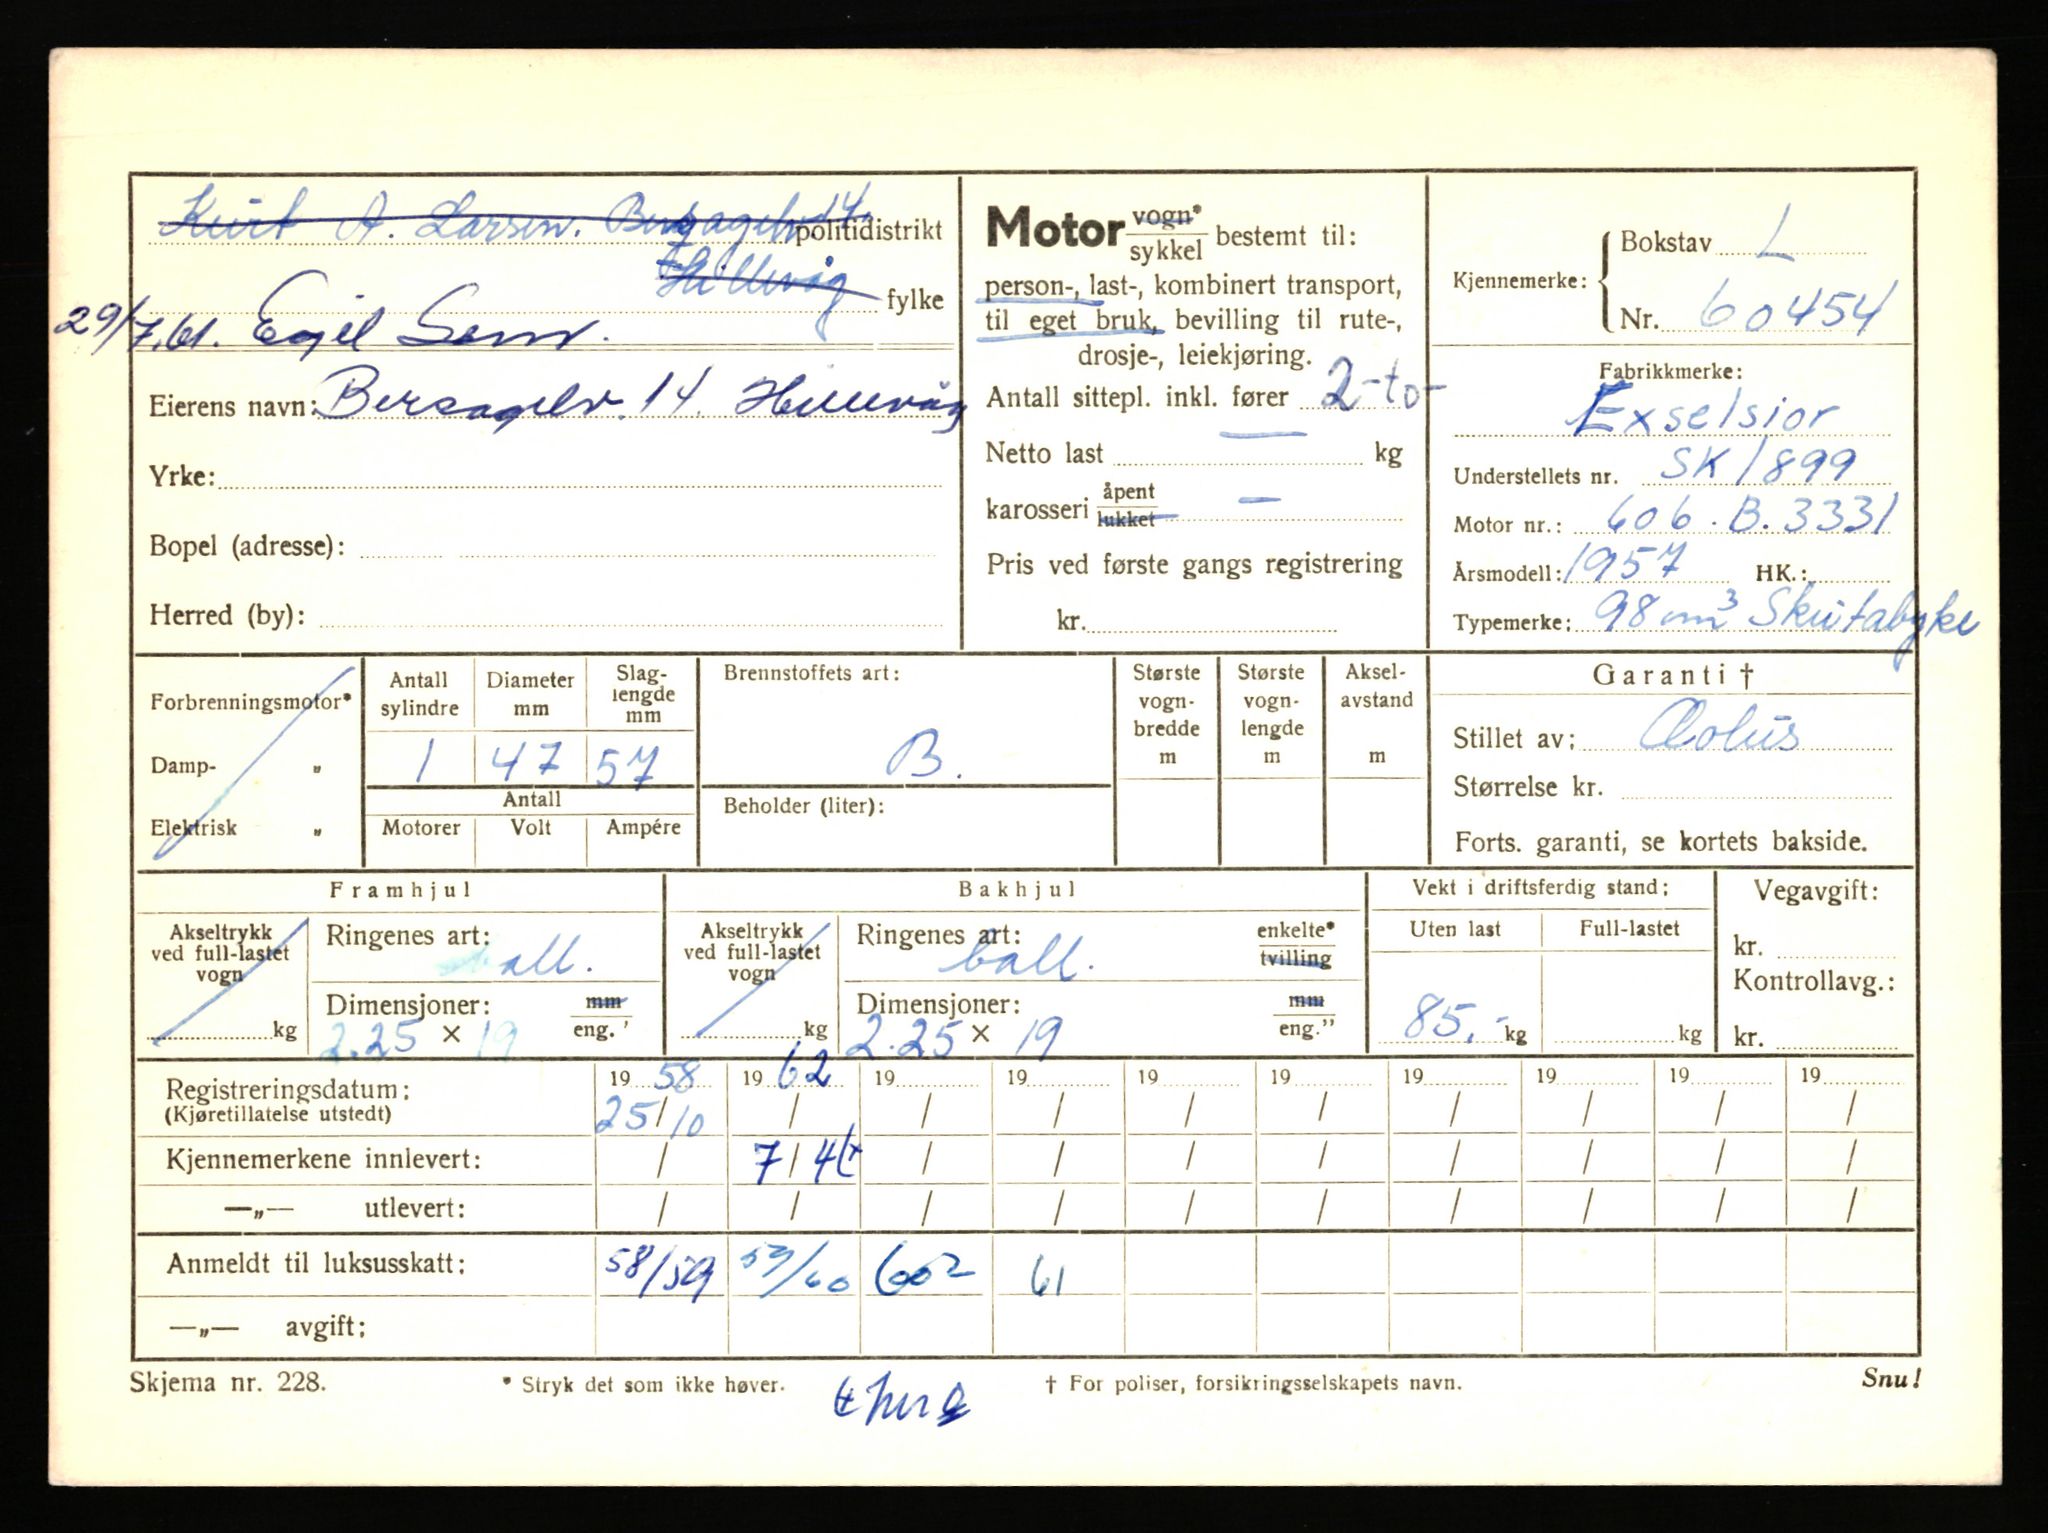 Kurt A. Larsen. Bersagelv. 14. politidistrikt
Hillevåg fylke
29/7.61. Egil Sem.
Eierens navn: Bersagelv. 14. Hillevåg
Yrke:
Bopel (adresse):
Herred (by):
Motor vogn* sykkel bestemt til:
person-, last-, kombinert transport,
til eget bruk, bevilling til rute-,
drosje-, leiekjøring.
Antall sittepl. inkl. fører 2-to-
Netto last — kg
karosseri åpent lukket —
Pris ved første gangs registrering
kr.
Kjennemerke: Bokstav L
Nr. 60454
Fabrikkmerke:
Exselsior
Understellets nr. SK/899
Motor nr.: 606.B.3331
Årsmodell: 1957 HK.:
Typemerke: 98 m³ Skutabyke
Forbrenningsmotor*
Damp- „
Elektrisk „
Antall sylindre Diameter mm Slag-lengde mm
1 47 57
Antall
Motorer Volt Ampére
Brennstoffets art:
B.
Beholder (liter):
Største vogn-bredde m
Største vogn-lengde m
Aksel-avstand m
Garanti †
Stillet av: Æolus
Størrelse kr.
Forts. garanti, se kortets bakside.
Framhjul
Akseltrykk ved full-lastet vogn kg
Ringenes art: ball.
Dimensjoner: mm eng.'
2.25 × 19
Bakhjul
Akseltrykk ved full-lastet vogn kg
Ringenes art: ball. enkelte* tvilling
Dimensjoner: mm eng."
2.25 × 19
Vekt i driftsferdig stand:
Uten last Full-lastet
85.- kg kg
Vegavgift:
kr.
Kontrollavg.:
kr.
Registreringsdatum: 19 58 19 62 19 19 19 19 19 19 19 19
(Kjøretillatelse utstedt) 25/10 / / / / / / / / /
Kjennemerkene innlevert: / 7/4 / / / / / / / /
—„— utlevert: / / / / / / / / / /
Anmeldt til luksusskatt: 58/59 59/60 60² 61
—„— avgift:
Skjema nr. 228. * Stryk det som ikke høver. † For poliser, forsikringsselskapets navn. Snu!